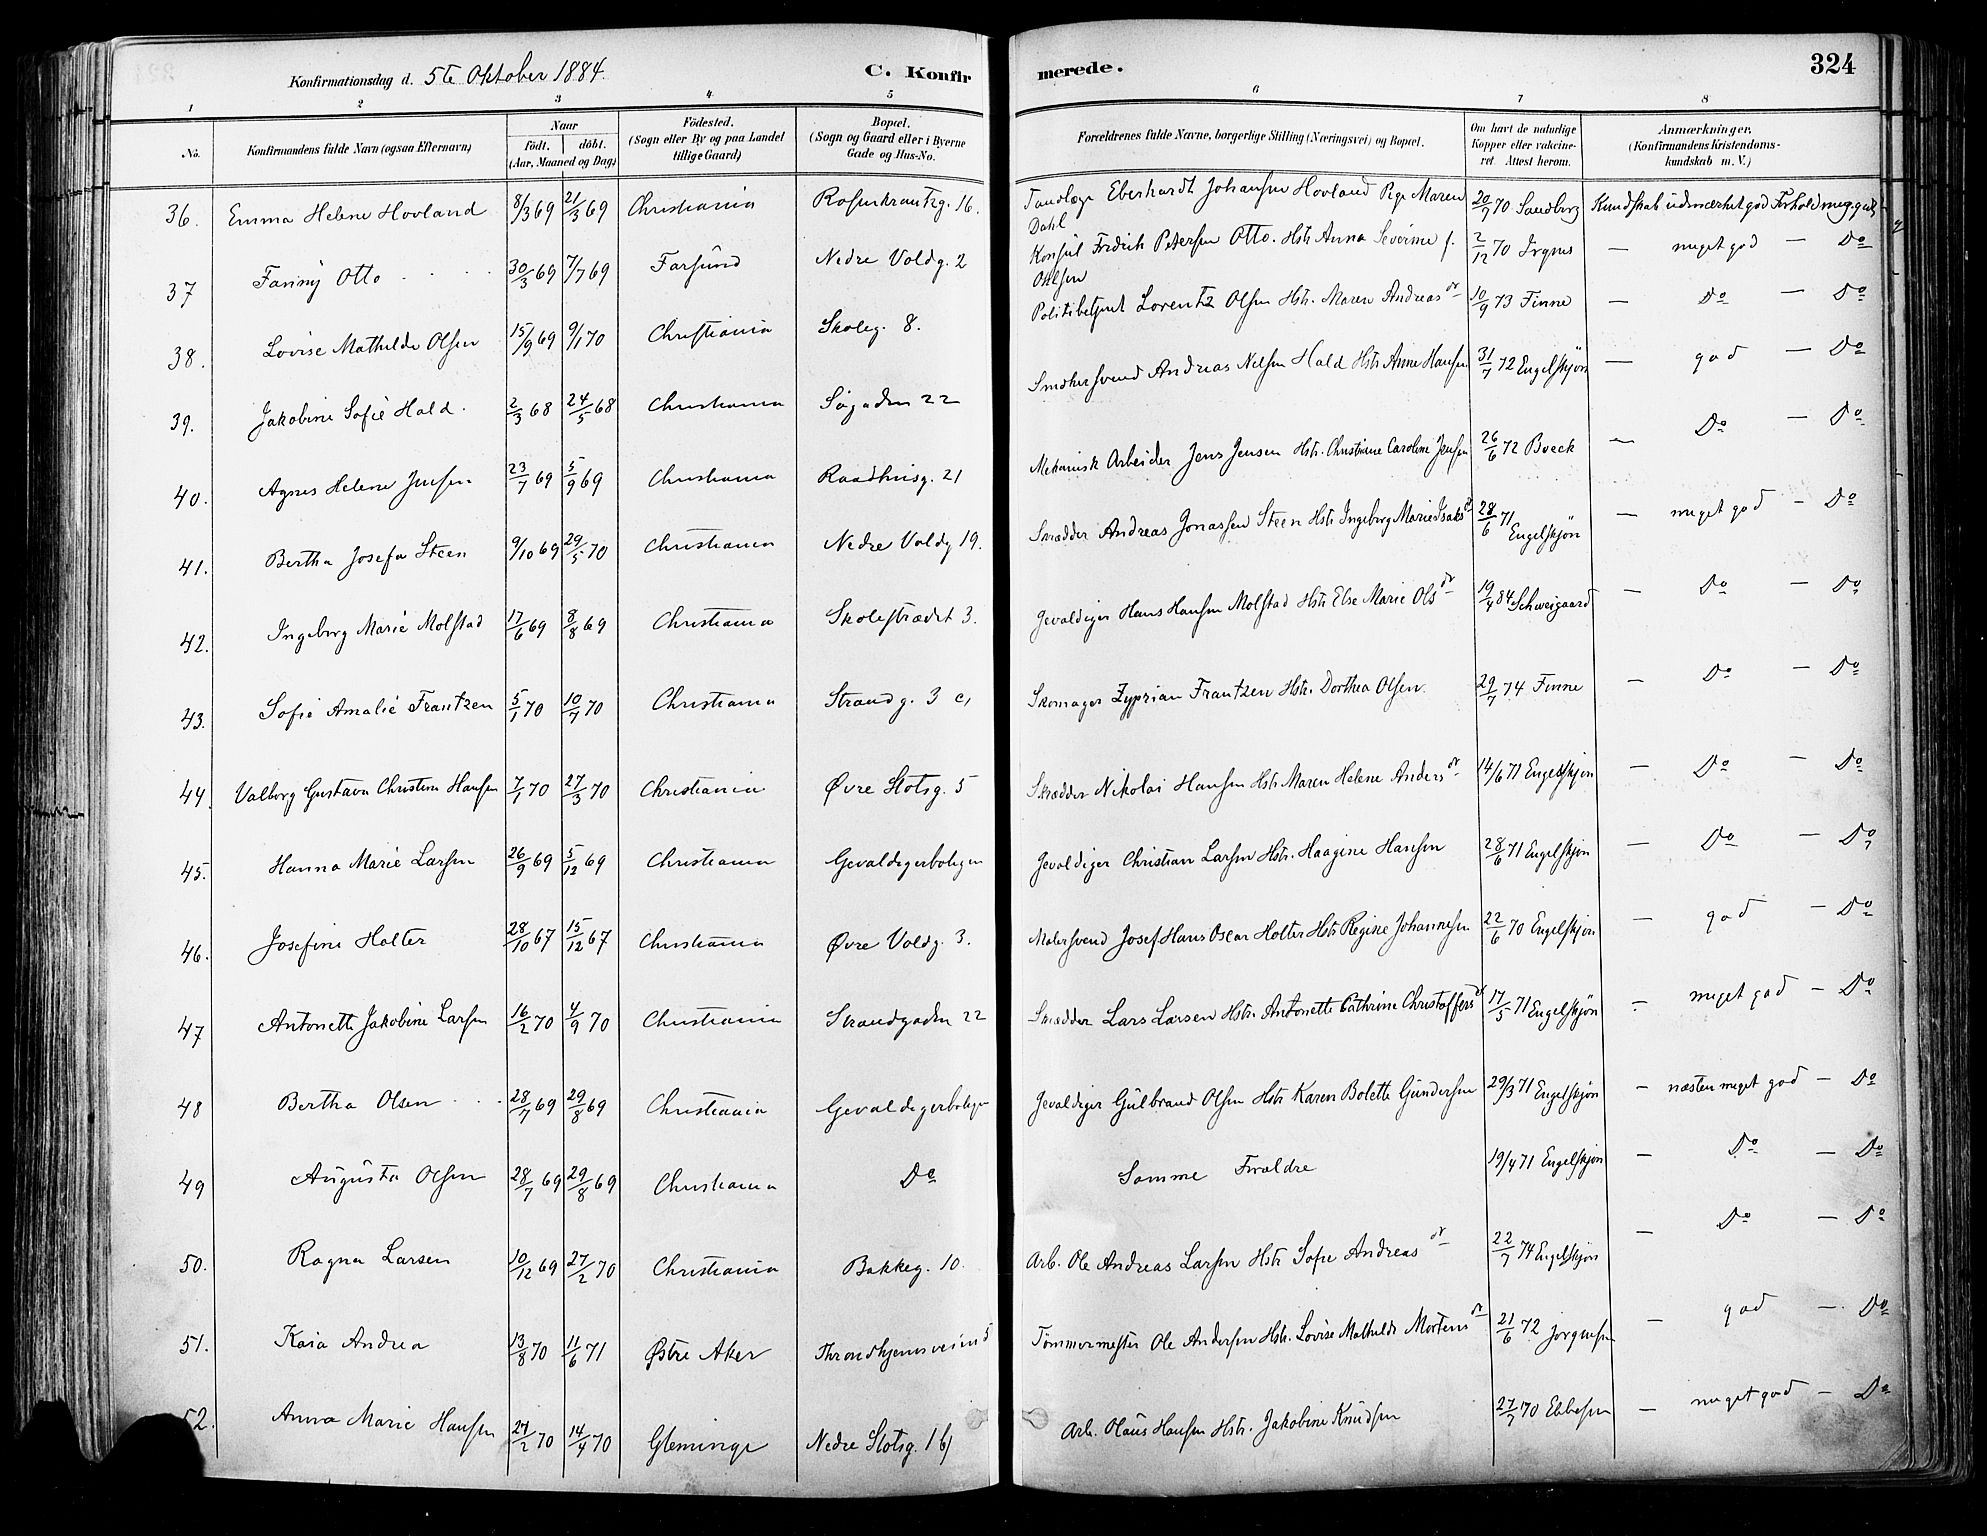 Konfirmationsdag d. 5te Oktober 1884.
C. Konfirmerede.
324
1 2 3 4 5 6 7 8
No. Konfirmandens fulde Navn (ogsaa Efternavn) Naar født. døbt. (Aar, Maaned og Dag) Fødested. (Sogn eller By og paa Landet tillige Gaard) Bopæl. (Sogn og Gaard eller i Byerne Gade og Hus-No. Forældrenes fulde Navne, borgerlige Stilling (Næringsvei) og Bopæl. Om havt de naturlige Kopper eller vakcineret. Attest herom. Anmærkninger. (Konfirmandens Kristendomskundskab m. V.)
36. Emma Helene Hovland 8/3 69 21/3 69 Christiania Rosenkrantzg. 16. Tandlæge Eberhardt Johansen Hovland Pige Maren Dahl 20/7 70 Sandberg Kundskab udmærket god Forhold meg. godt
37 Fanny Otto 30/3 69 7/7 69 Farsund Nedre Voldg. 2 Konsul Fredrik Petersen Otto. Hstr Anna Severine f. Ohlsen 2/12 70 Irgens — meget god — Do
38. Lovise Mathilde Olsen 15/9 69 9/1 70 Christiania Skoleg. 8. Politibetjent Lorentz Olsen Hstr. Maren Andreasdr 10/9 73 Finne — Do — Do
39. Jakobine Sofie Hald. 2/3 68 24/5 68 Christiania Søgaden 22 Snedkersvend Andreas Nelsen Hald Hstr Anne Hansen 31/7 72 Engelskjøn — god — Do
40. Agnes Helene Jensen 23/7 69 5/9 69 Christiania Raadhusg. 21 Mekanisk Arbeider Jens Jensen Hstr. Christine Caroline Jensen 26/6 72 Boeck — Do — Do
41. Bertha Josefa Steen 9/10 69 29/5 70 Christiania Nedre Voldg 19. Skrædder Andreas Jonassen Steen Hstr Ingeborg Marie Isaksdr 28/6 71 Engelskjøn — meget god — Do
42. Ingeborg Marie Molstad 17/6 69 8/8 69 Christiania Skolestrædet 3. Gevaldiger Hans Hansen Molstad Hstr Else Marie Olsdr 19/4 84 Schweigaard — Do — Do
43. Sofie Amalie Frantzen 5/1 70 10/7 70 Christiania Strandg. 3 c, Skomager Zyprian Frantzen Hstr. Dorthea Olsen. 29/7 74 Finne — Do — Do
44. Valborg Gustava Christine Hansen 7/1 70 27/3 70 Christiania Øvre Slotsg. 5 Skrædder Nikolai Hansen Hstr Maren Helene Andersdr 14/6 71 Engelskjøn — Do — Do
45. Hanna Marie Larsen 26/9 69 5/12 69 Christiania Gevaldigerboligen Gevaldiger Christian Larsen Hstr. Haagine Hansen 28/6 71 Engelskjøn — Do — Do
46. Josefine Holter 28/10 67 15/12 67 Christiania Øvre Voldg. 3. Malersvend Josef Hans Oscar Holter Hstr Regine Johannesen 22/6 70 Engelskjøn — god — Do
47 Antonette Jakobine Larsen 16/2 70 4/9 70 Christiania Strandgaden 22 Skrædder Lars Larsen Hstr. Antonette Cathrine Christoffersdr 17/5 71 Engelskjøn — meget god — Do
48 Bertha Olsen 28/7 69 29/8 69 Christiania Gevaldigerboligen Gevaldiger Gulbrand Olsen Hstr Karen Bolette Gundersen 29/3 71 Engelskjøn — næsten meget god — Do
49 Augusta Olsen 28/7 69 29/8 69 Christiania Do Samme Forældre 19/4 71 Engelskjøn — Do — Do
50. Ragna Larsen 10/12 69 27/2 70 Christiania Bakkeg. 10. Arb. Ole Andreas Larsen Hstr Sofie Andreasdr 22/7 74 Engelskjøn — Do — Do
51. Kaia Andrea 13/8 70 11/6 71 Østre Aker Throndhjemsveien 5 Tømmermester Ole Andersen Hstr. Lovise Mathilde Mortensdr 21/6 72 Jørgensen — god — Do
52. Anna Marie Hansen 27/2 70 14/4 70 Gleminge Nedre Slotsg. 16) Arb. Olaus Hansen Hstr. Jakobine Knudsen 27/7 70 Ebbesen — meget god — Do